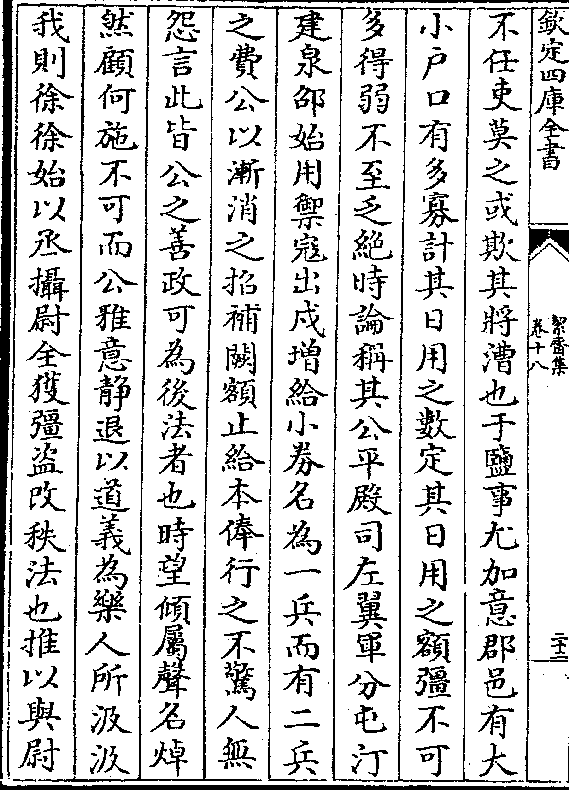 欽定四庫全書
絜齋集
卷十八
二十三
不任吏莫之或欺其將漕也于鹽事尤加意郡邑有大
小戶口有多寡計其日用之數定其日用之額彊不可
多得弱不至乏絶時論稱其公平殿司左翼軍分屯汀
建泉邵始用禦寇出戍増給小劵名為一兵而有二兵
之費公以漸消之招補闕額止給本俸行之不驚人無
怨言此皆公之善政可為後法者也時望傾屬聲名焯
然顧何施不可而公雅意静退以道義為樂人所汲汲
我則徐徐始以丞攝尉全獲彊盗改秩法也推以與尉